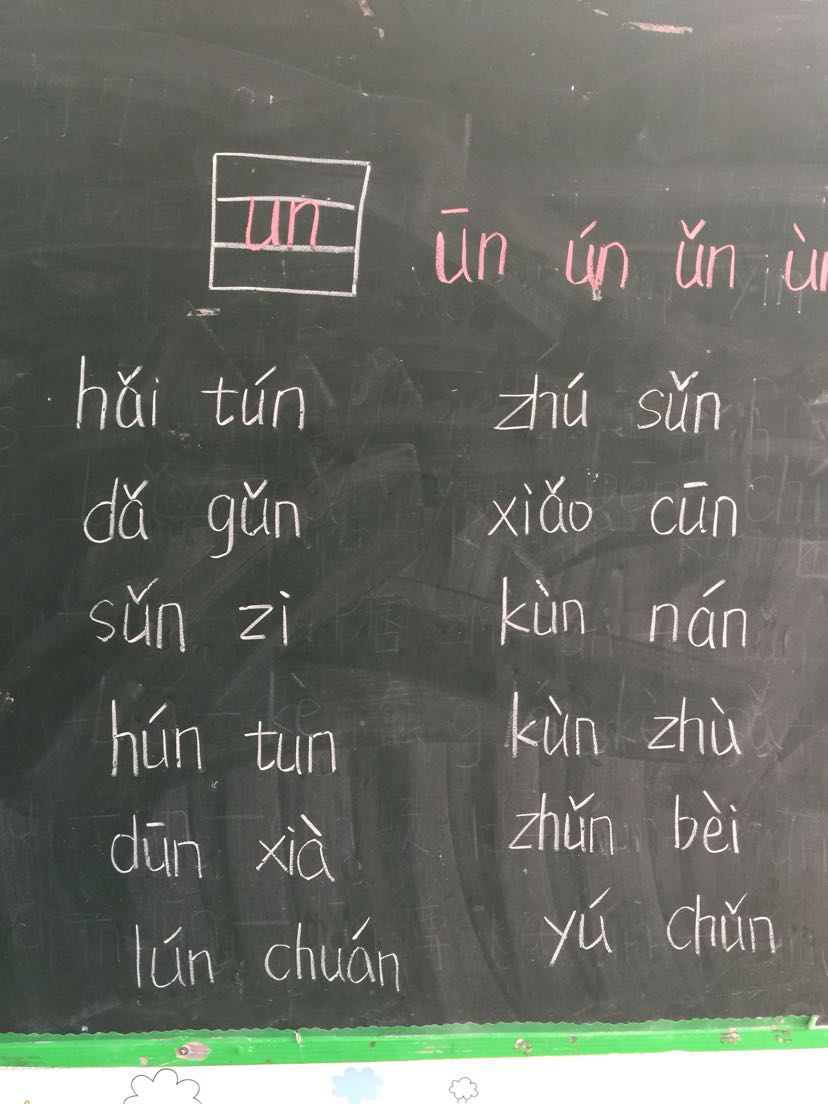 un ūn ún ǔn ùn
hǎi tún zhú sǔn
dǎ gǔn xiǎo cūn
sǔn zi kùn nán
hún tun kùn zhù
dūn xià zhǔn bèi
lún chuán yú chǔn